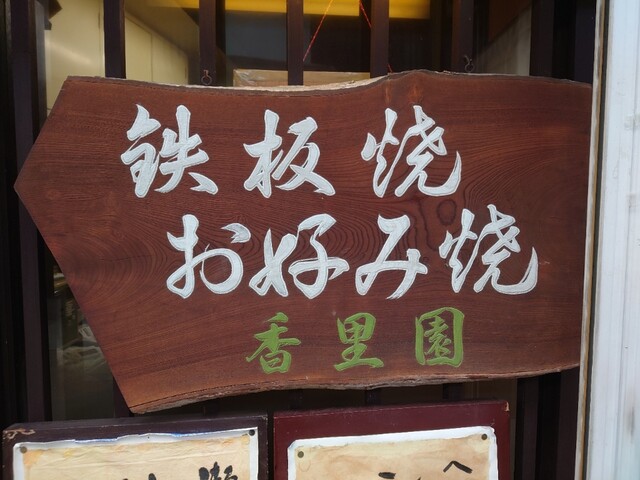 鉄板焼
お好み焼
香里園